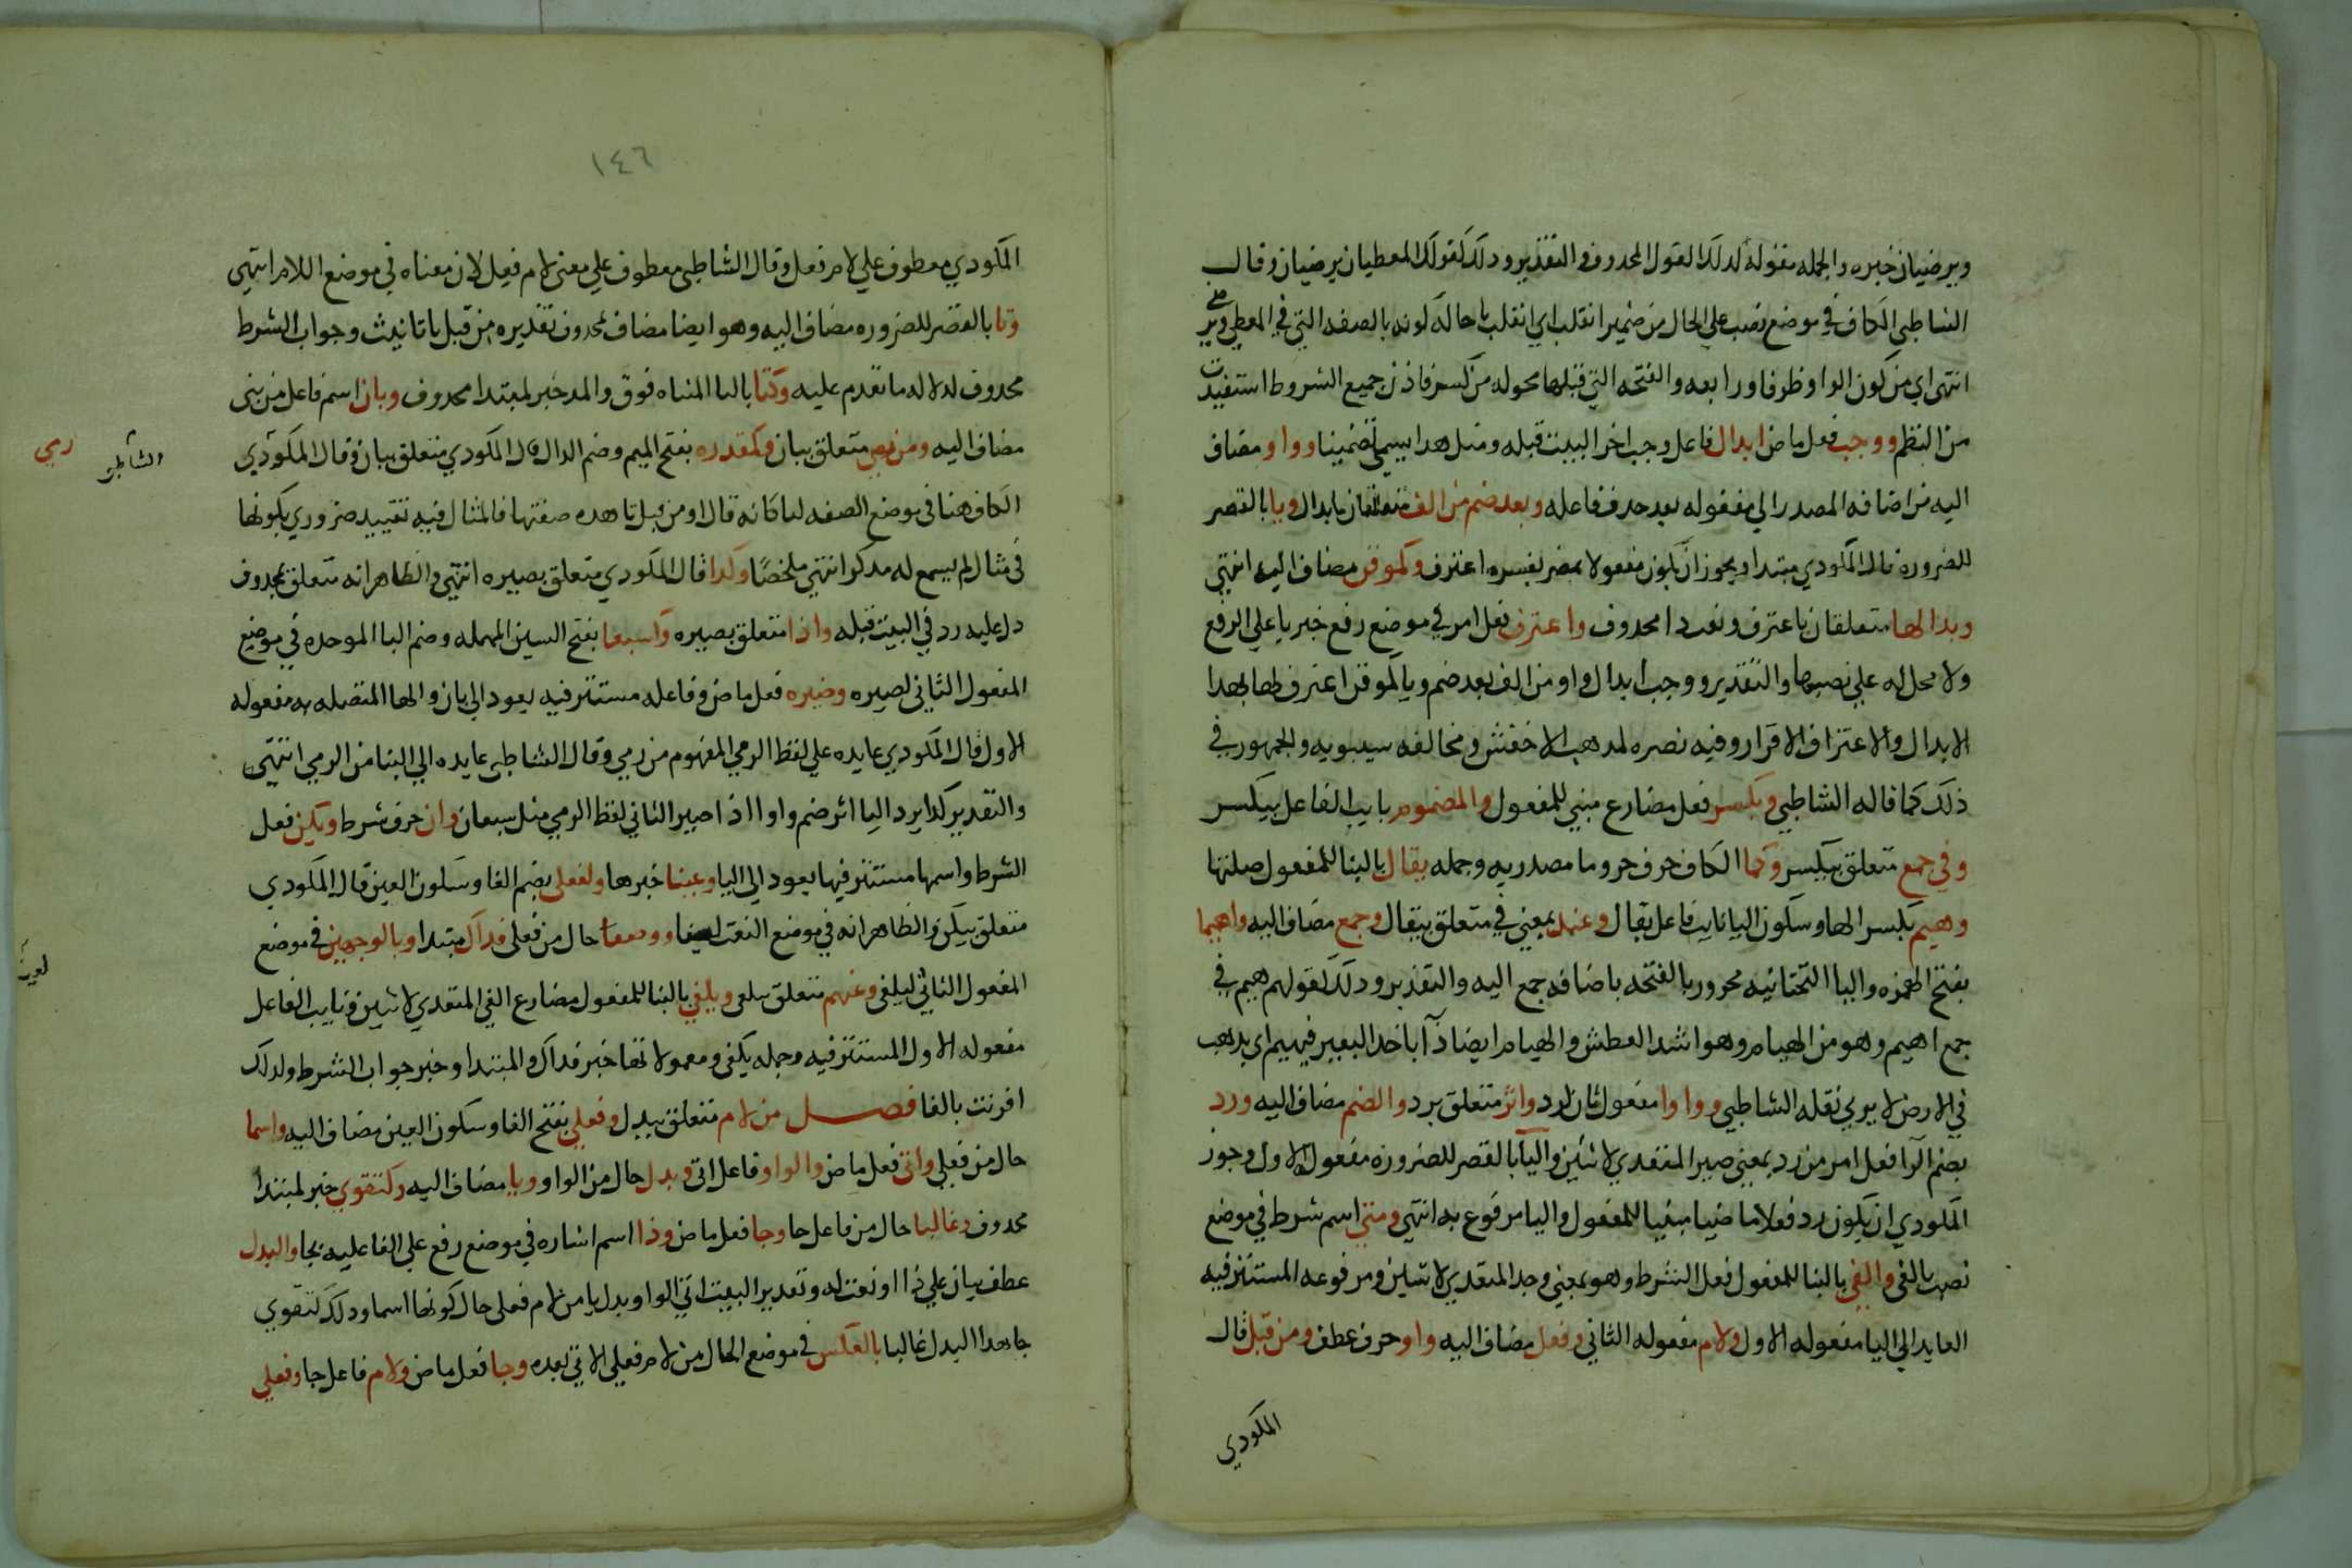 ويرضيان خبره والجمله مقوله لدلك القول المحدوف والتقدير ودلك كقولك المعطيان يرضيان وقال
الشاطبي الكاف في موضع نصب علي الحال من ضمير انقلب اي انقلب يا حاله كونه بالصفه التي في المعطي
انتهي اي من كون الواو ظرفا ورابعه والفتحه التي قبلها محوله من كسر فاذن جميع الشروط استفيدت
من النظم ووجب فعل ماض ابدال فاعل وجب اخر البيت قبله ومثل هدا يسمي تضمينا وواو مضاف
اليه من اضافه المصدر الي مفعوله بعد حدف فاعله وبعد ضم من الف متعلقان بابدال ويا بالقصر
للضروره قال المكودي مبتدا ويجوز ان يكون مفعولا بمضمر يفسره اعترف وكموقن مضاف اليه انتهي
وبدا لها متعلقان باعترف ونعت دا محدوف واعترف فعل امر في موضع رفع خبر يا علي الرفع
ولا محل له علي نصبها والتقدير ووجب ابدال واو من الف بعد ضم ويا كموقن اعترف لها بهدا
الابدال والاعتراف الاقرار وفيه نصره لمدهب الاخفش ومخالفه سيبويه والجمهور في
ذلك كما قاله الشاطبي ويكسر فعل مضارع مبني للمفعول والمضموم نايب الفاعل بيكسر
وفي جمع متعلق بيكسر وكما الكاف حرف جر وما مصدريه وجمله يقال بالبنا للمفعول صلتها
وهيم بكسر الها وسكون اليا نايب فاعل يقال وعند بمعني في متعلق بيقال وجمع مضاف اليه واهيما
بفتح الهمزه واليا التحتانيه مجرور بالفتحه باضافه جمع اليه والتقدير ودلك كقولهم هيم في
جمع اهيم وهو من الهيام وهو اشد العطش والهيام ايضا دآ ياخد البعير فيهيم اي يدهب
في الارض لا يرعي نقله الشاطبي وواوا مفعول ثان لرد واثر متعلق برد والضم مضاف اليه ورد
بضم الرآ فعل امر من رد بمعني صير المتعدي لاثنين واليا بالقصر للضروره مفعوله الاول وجوز
المكودي ان يكون رد فعلا ماضيا مبنيا للمفعول واليا مرفوع به انتهي ومتي اسم شرط في موضع
نصب بالفي والفي بالبنا للمفعول فعل الشرط وهو بمعني وجد المتعدي لاثنين ومرفوعه المستتر فيه
العايد الي اليا مفعوله الاول ولام مفعوله الثاني وفعل مضاف اليه واو حرف عطف ومن قبل قال
المكودي
١٤٦
المكودي معطوف علي لام فعل وقال الشاطبي معطوف علي معني لام فعل لان معناه في موضع اللام انتهي
وتا بالقصر للضروره مضاف اليه وهو ايضا مضاف لمحدوف تقديره من قبل يا تانيث وجواب الشرط
محدوف لدلاله ما تقدم عليه وكتا بالتا المثناه فوق والمد خبر لمبتدا محدوف وبان اسم فاعل من بني
مضاف اليه ومن رمي متعلق ببان وكمقدره بفتح الميم وضم الدال قال المكودي متعلق ببان وقال المكودي
الشاطبي
رمي
الكاف هنا في موضع الصفه لتا كانه قال او من قبل تا هده صفتها فالمثال فيه تقييد ضروري بكونها
في مثال لم يسمع له مدكر انتهي ملخصا وكدا قال المكودي متعلق بصيره انتهي والظاهر انه متعلق بمحدوف
دل عليه رد في البيت قبله واذا متعلق بصيره وكسبعا بفتح السين المهمله وضم البا الموحده في موضع
المفعول الثاني لصيره وصيره فعل ماض وفاعله مستتر فيه يعود الي بان والها المتصله به مفعوله
الاول قال المكودي عايده علي لفظ الرمي المفهوم من رمي وقال الشاطبي عايده الي البنا من الرمي انتهي
والتقدير كدا يرد اليا اثر ضم واوا اذا صير الثاني لفظ الرمي مثل سبعان وان حرف شرط ويكن فعل
الشرط واسمها مستتر فيها يعود الي اليا وعينا خبرها ولفعلي بضم الفا وسكون العين قال المكودي
متعلق بيكن والظاهر انه في موضع النعت لعينا ووصفا حال من فعلي فداك مبتدا وبالوجهين في موضع
المفعول الثاني ليلفي وعنهم متعلق بيلفي ويلفي بالبنا للمفعول مضارع الفي المتعدي لاثنين ونايب الفاعل
مفعوله الاول المستتر فيه وجمله يلفي ومعمولاتها خبر فداك والمبتدا وخبره جواب الشرط ولدلك
اقرنت بالفا فصــــل من لام متعلق ببدل وفعلي بفتح الفا وسكون العين مضاف اليه واسما
حال من فعلي واتي فعل ماض والواو فاعل اتي وبدل حال من الواو ويا مضاف اليه وكتقوي خبر لمبتدا
محدوف وغالبا حال من فاعل جا وجا فعل ماض وذا اسم اشاره في موضع رفع علي الفاعليه بجا والبدل
عطف بيان علي ذا او نعت له وتقدير البيت اتي الواو بدل يا من لام فعلي حال كونها اسما ودلك كتقوي
جا هدا البدل غالبا بالعكس في موضع الحال من لام فعلي الاتي بعده وجا فعل ماض ولام فاعل جا وفعلي